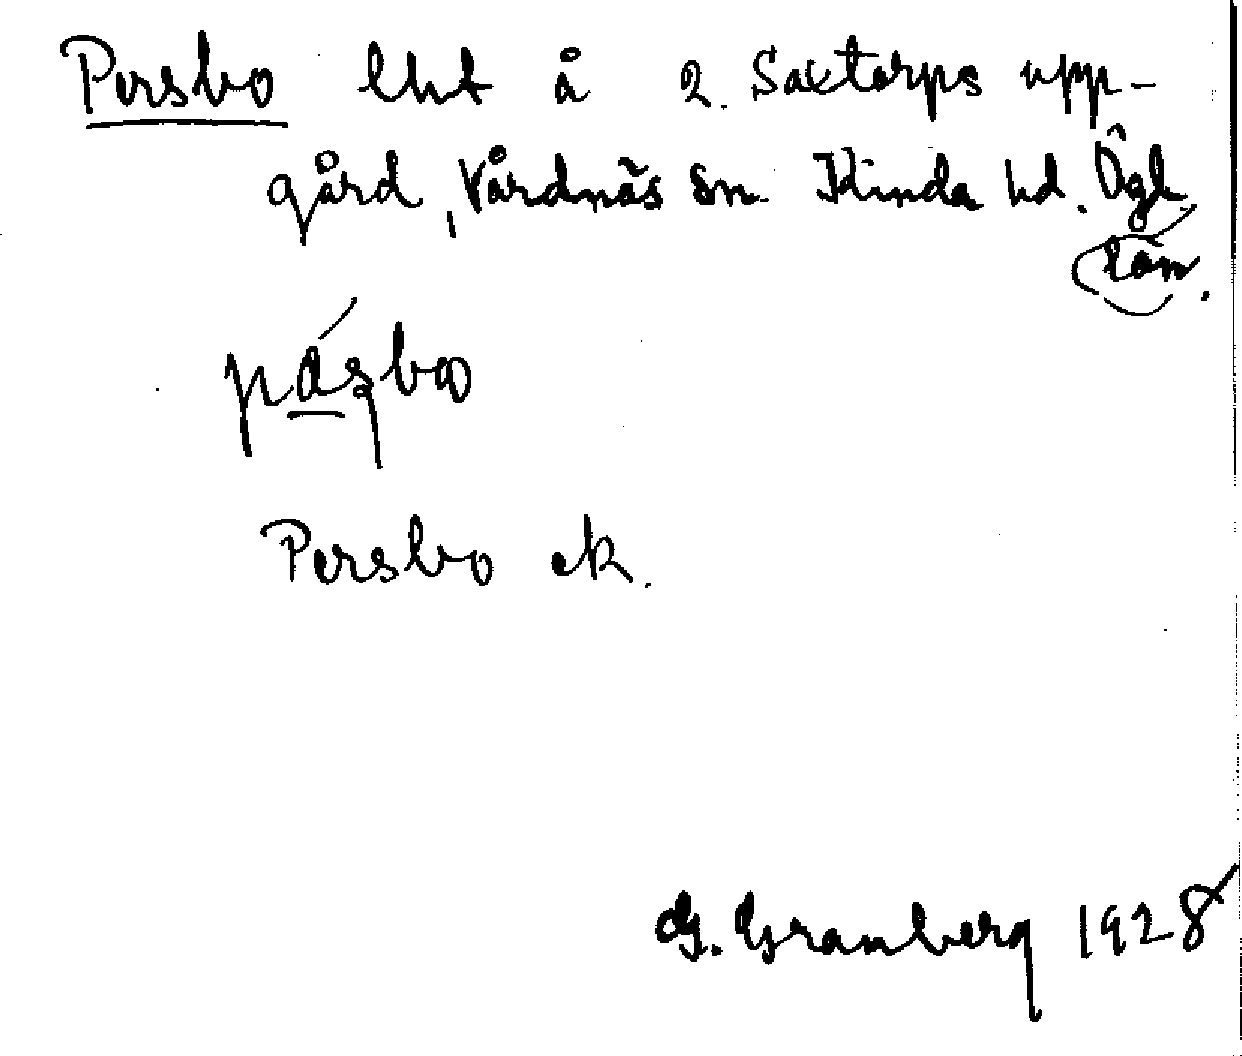 Persbo lht å 2. Saxtorps upp-
gård, Vårdnäs sn. Kinda hd. Ögl.
län.
Persbo ek.
G. Granberg 1928